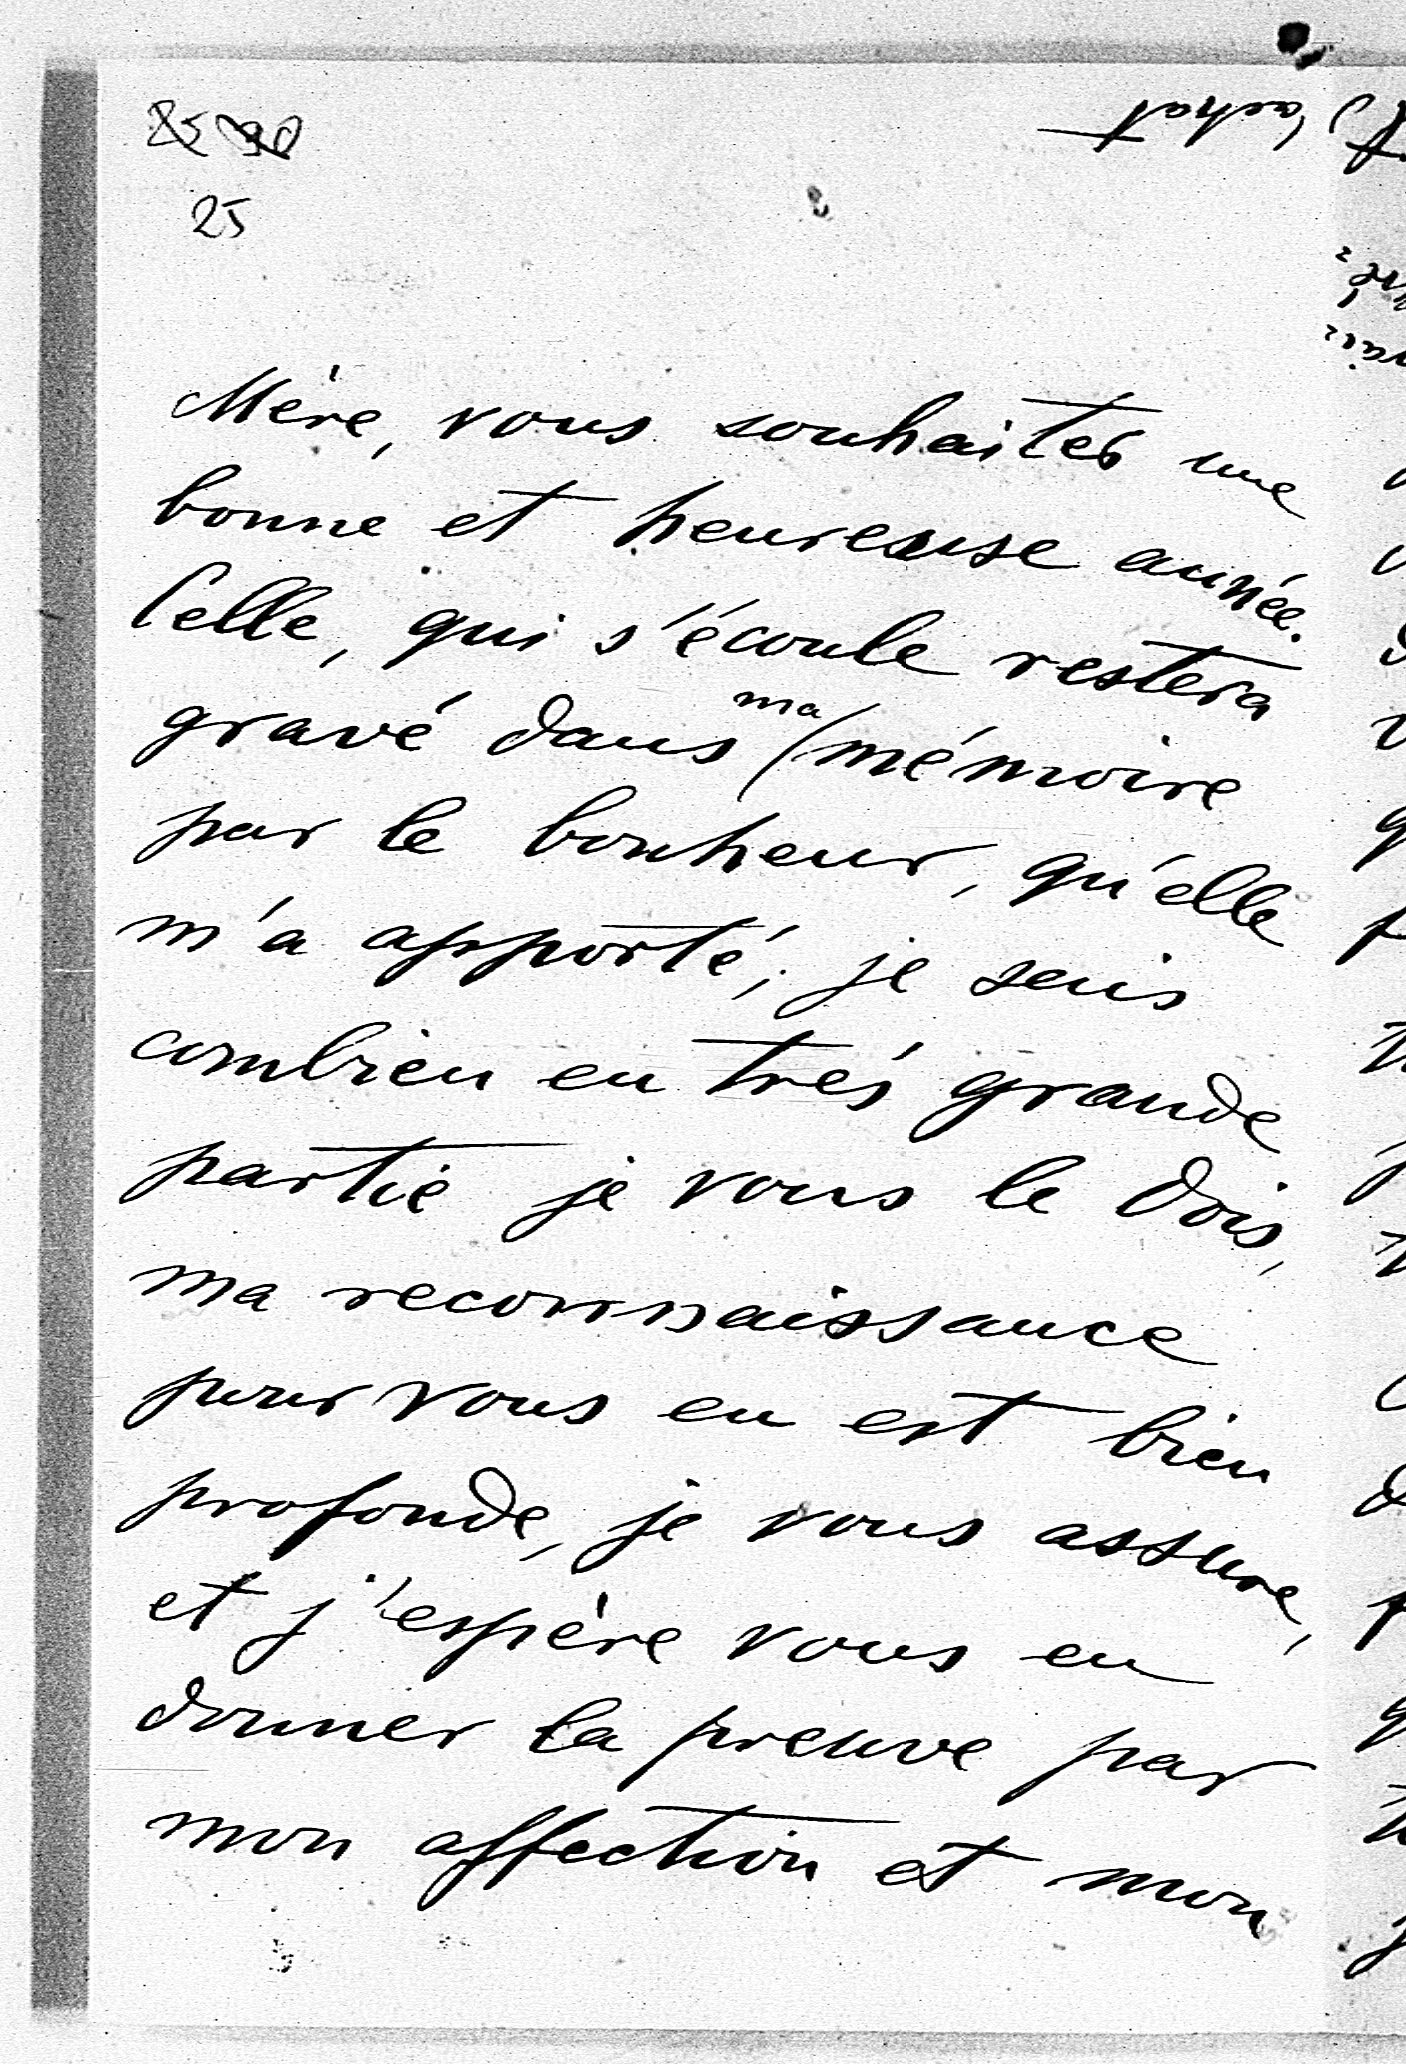 25
Mère, vous souhaiter une
bonne et heureuse année.
Celle, qui s'écoule restera
gravé dans ma mémoire
par le bonheur, qu'elle
m'a apporté; je sens
combien en très grande
partie je vous le dois,
ma reconnaissance
pour vous en est bien
profonde, je vous assure,
et j'espère vous en
donner la preuve par
mon affection et mon